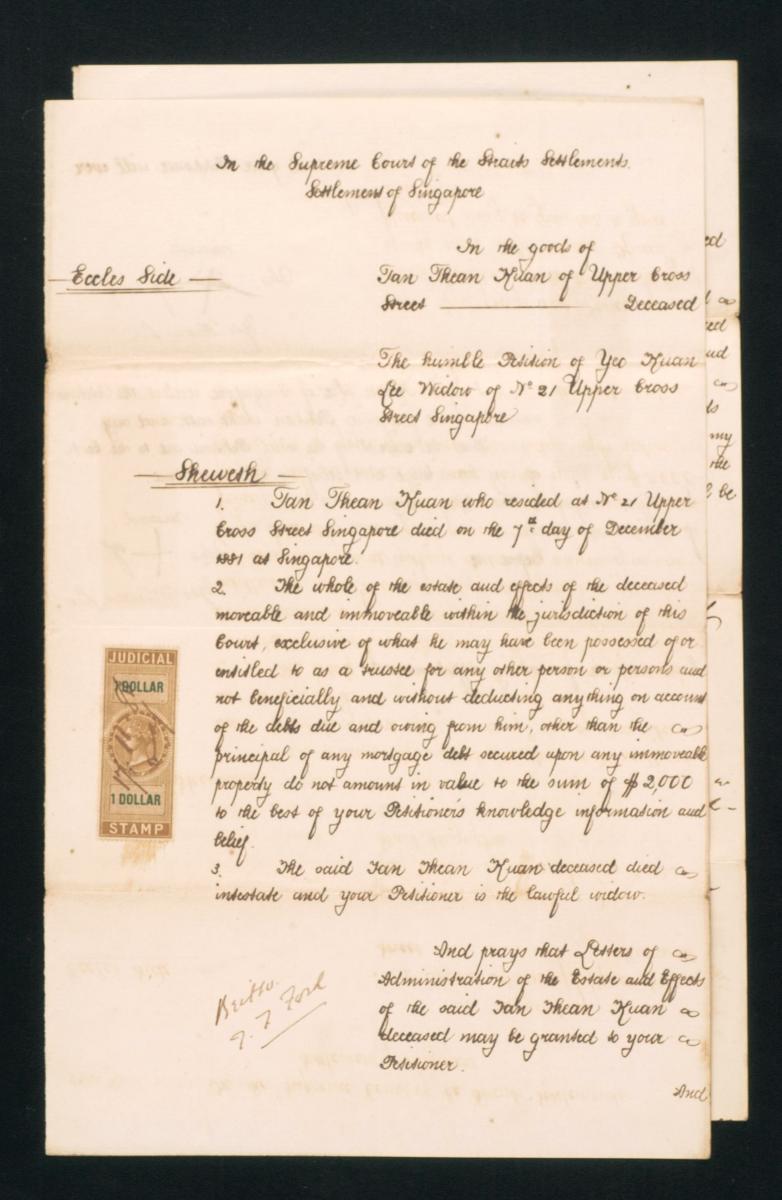 In the Supreme Court of the Straits Settlements.
Settlement of Singapore
In the goods of
Eccles Side
Tan Thean Kuan of Upper Cross
Street Deceased
The humble Petition of Yeo Kuan
Lee Widow of No 21 Upper Cross
Street Singapore
Sheweth
1. Tan Thean Kuan who resided at No 21 Upper
Cross Street Singapore died on the 7th day of December
1881 at Singapore.
2. The whole of the estate and effects of the deceased
moveable and immoveable within the jurisdiction of this
Court, exclusive of what he may have been possessed of or
entitled to as a trustee for any other person or persons and
not beneficially and without deducting anything on account
of the debts due and owing from him, other than the
principal of any mortgage debt secured upon any immoveable
property do not amount in value to the sum of $2,000
to the best of your Petitioner's knowledge information and
belief.
3. The said Tan Thean Kuan deceased died
intestate and your Petitioner is the lawful widow.
And prays that Letters of
Administration of the Estate and Effects
of the said Tan Thean Kuan
deceased may be granted to your
Petitioner.
And
JUDICIAL
1 DOLLAR
1 DOLLAR
STAMP
Ford
my
the
be